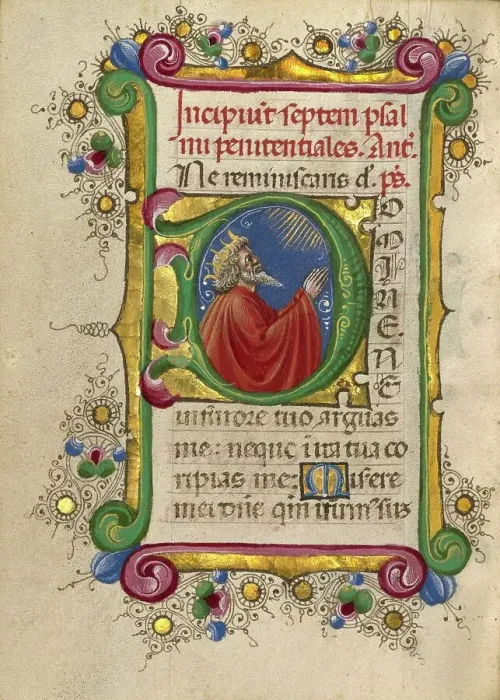 Incipiunt septem psal
mi penitentiales. Ant.
Ne reminiscaris d. ps.
DOMINE NE
in furore tuo arguas
me: neque i ira tua co
ripias me: Misere
mei dne qm infirmus sus